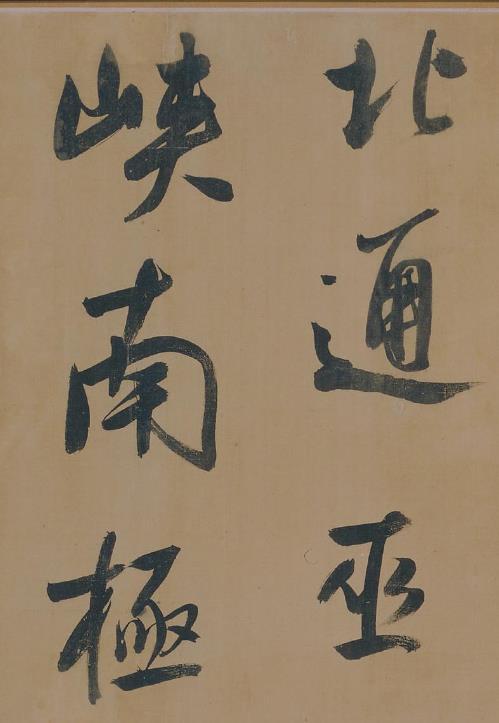 北通巫
峽南極